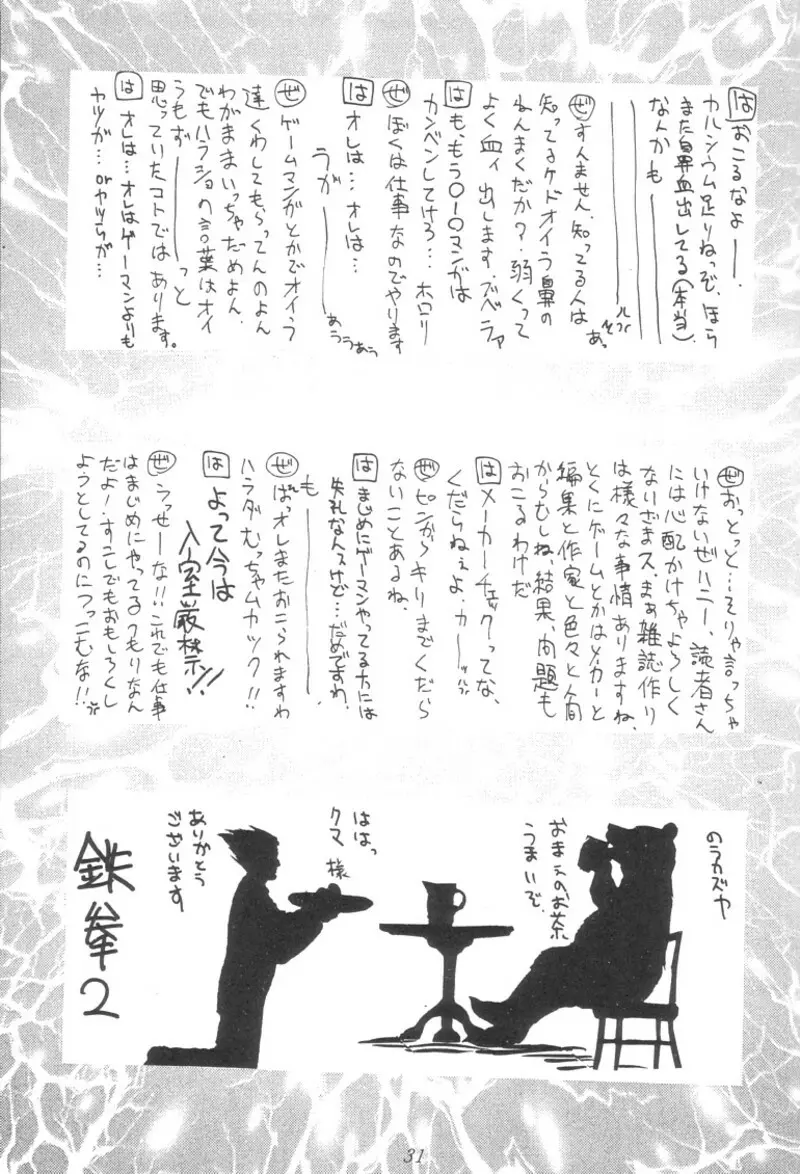 は おこるなよ――.
カルシウム足りねっぞ、ほら
また鼻血出してる(本当)
なんかも――
ぜ すんません、知ってる人は
知ってるケドオイラ鼻の
ねんまくだか?弱くって
よく血ィ出します。ブベラァ
は も、もう〇-〇マンがは
カンベンしてけろ… ホロリ
ぜ ぼくは仕事なのでやります
は オレは… オレは…
うが――
あううあう
ぜ ゲームマンがとかでオイラ
達くわしてもらってんのよん
わがままいっちゃだめよん、
でもハラショの言葉はオイ
うもず――っと
思っていたコトではあります。
は オレは… オレはゲーマンよりも
ヤツが… orヤツらが…
ぜ おっとっと… そりゃ言っちゃ
いけないぜハニー、読者さん
には心配かけちゃよろしく
ないざまス、まぁ雑誌作り
は様々な事情ありますね、
とくにゲームとかはメーカーと
編集と作家と色々と人間
からむしね、結果、問題も
おこるわけだ
は メーカーチェックってな、
くだらねぇよ、カーッ
ぜ ピンからキリまでくだら
ないことあるね、
は まじめにゲーマンやってる方には
失礼なんスけど… だめですわ、
も――
ぜ ばっオレまたおこられますわ
ハラダむっちゃムカック!!
は よって今は
入室厳禁!!
ぜ うっせーな!!これでも仕事
はまじめにやってるつもりなん
だよ!すこしでもおもしろくし
ようとしてるのにつっこむな!!
のうカズヤ
おまえのお茶
うまいぞ、
ははっ
クマ様
ありがとう
ございます
鉄拳2
31